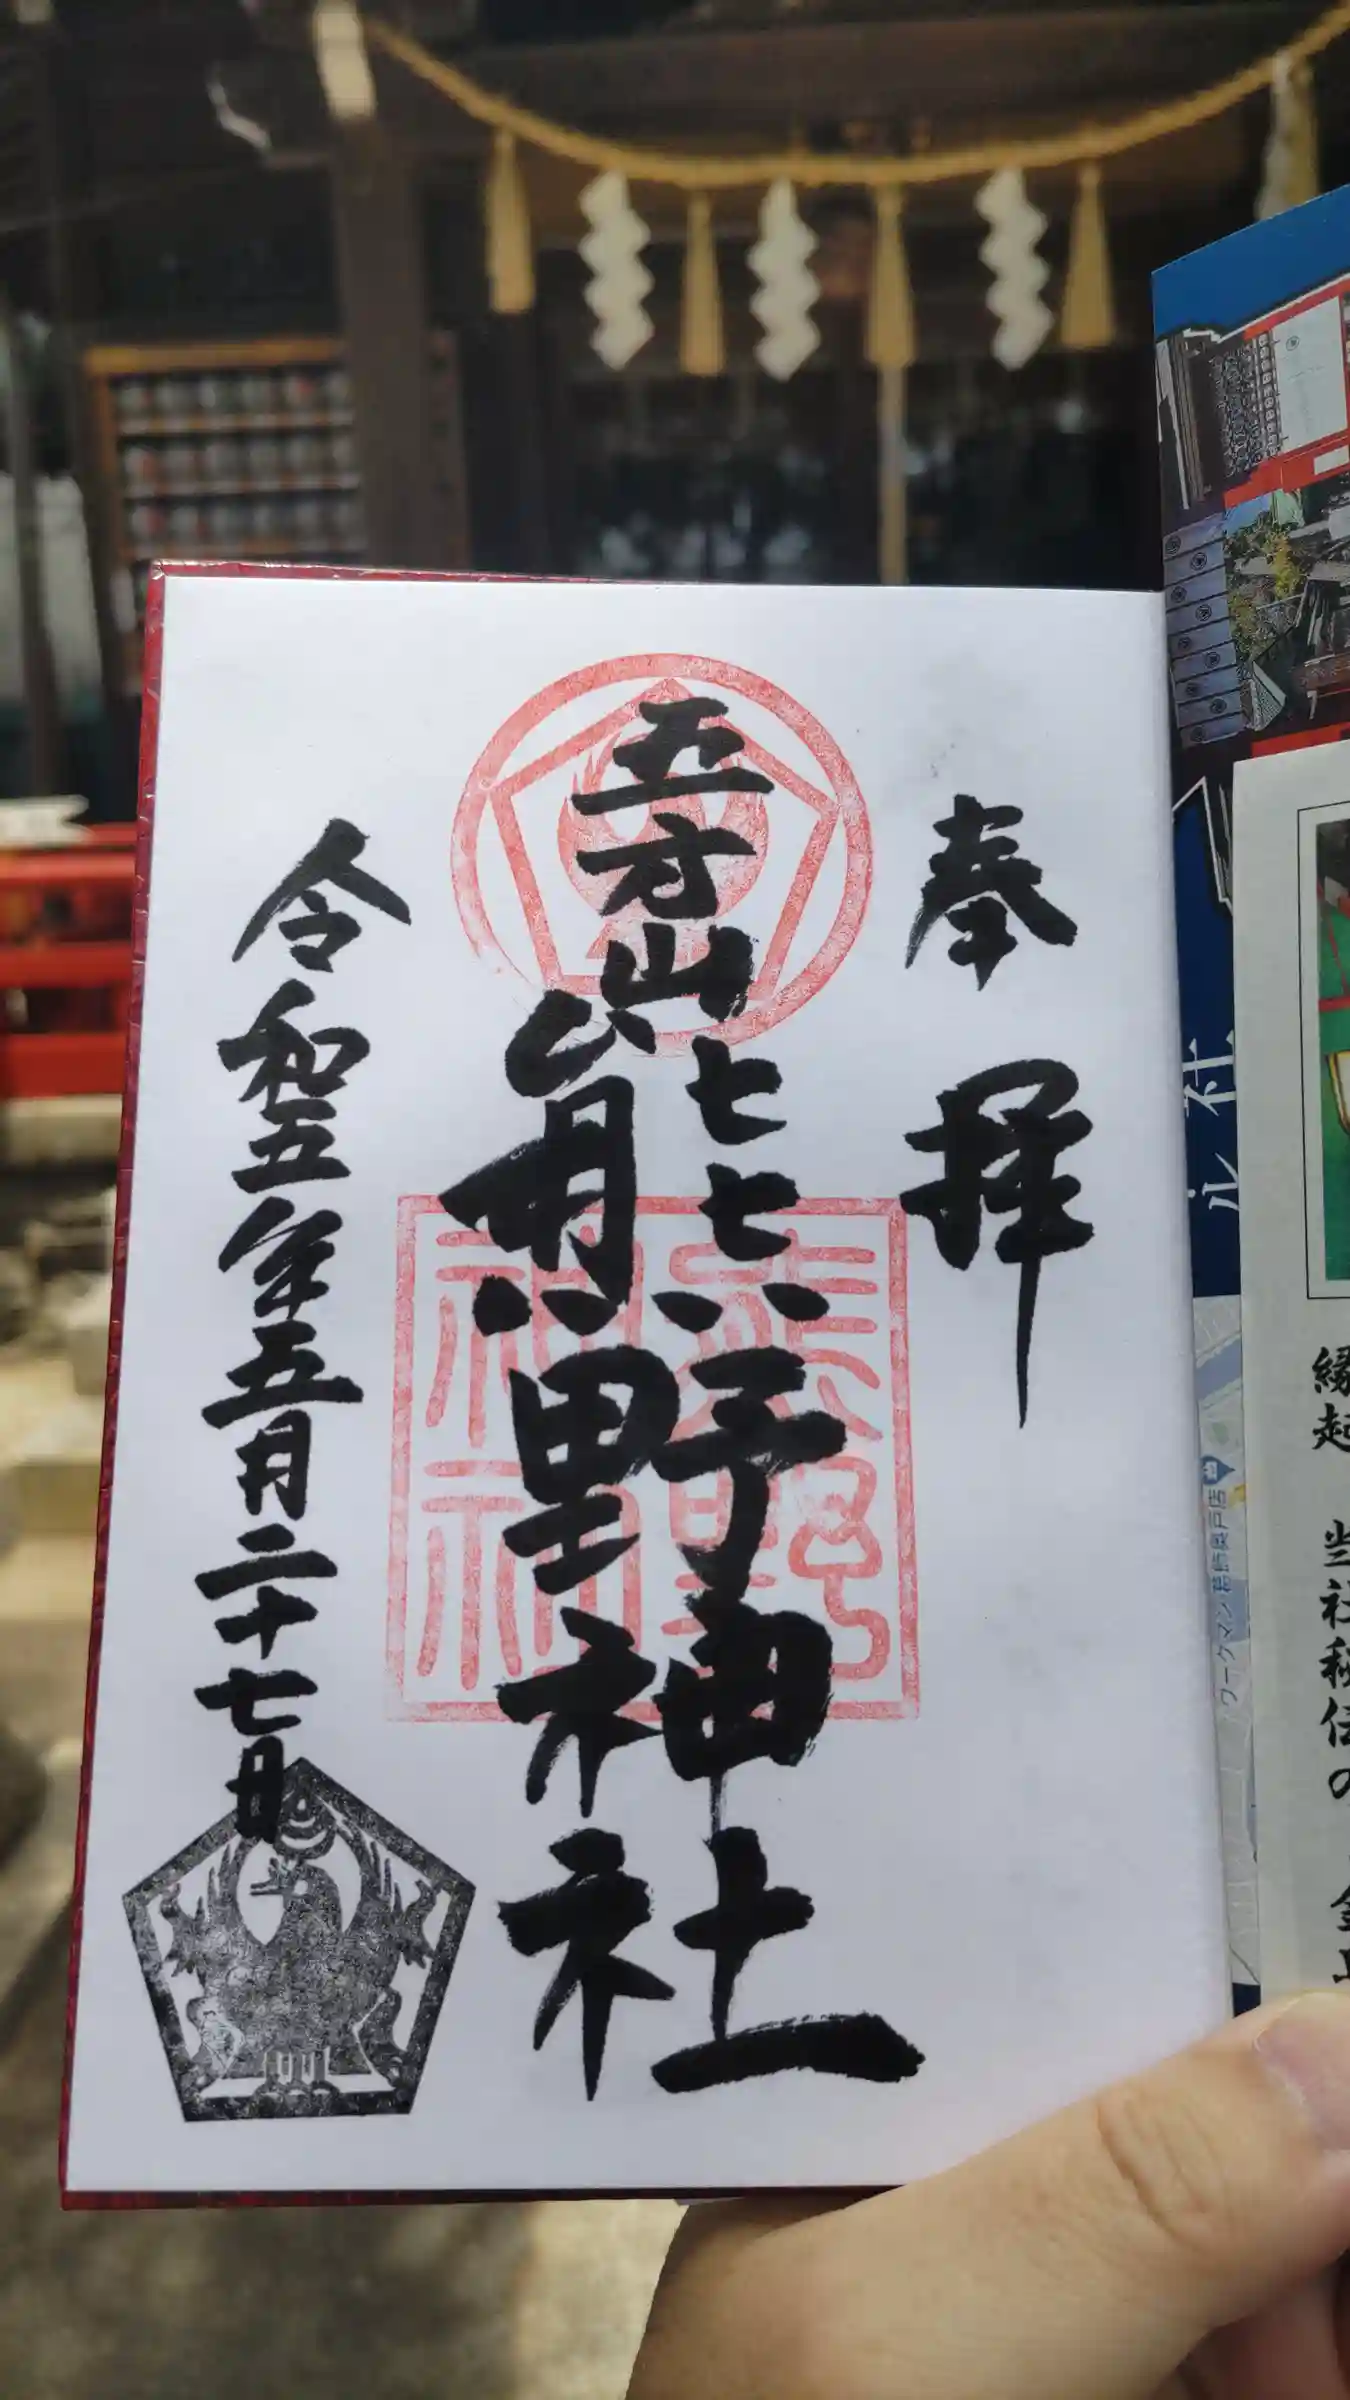 奉拝
五方山
熊野神社
令和五年五月二十七日
熊野
神社
縁起
当社秘伝の
ワークマン葛飾奥戸店